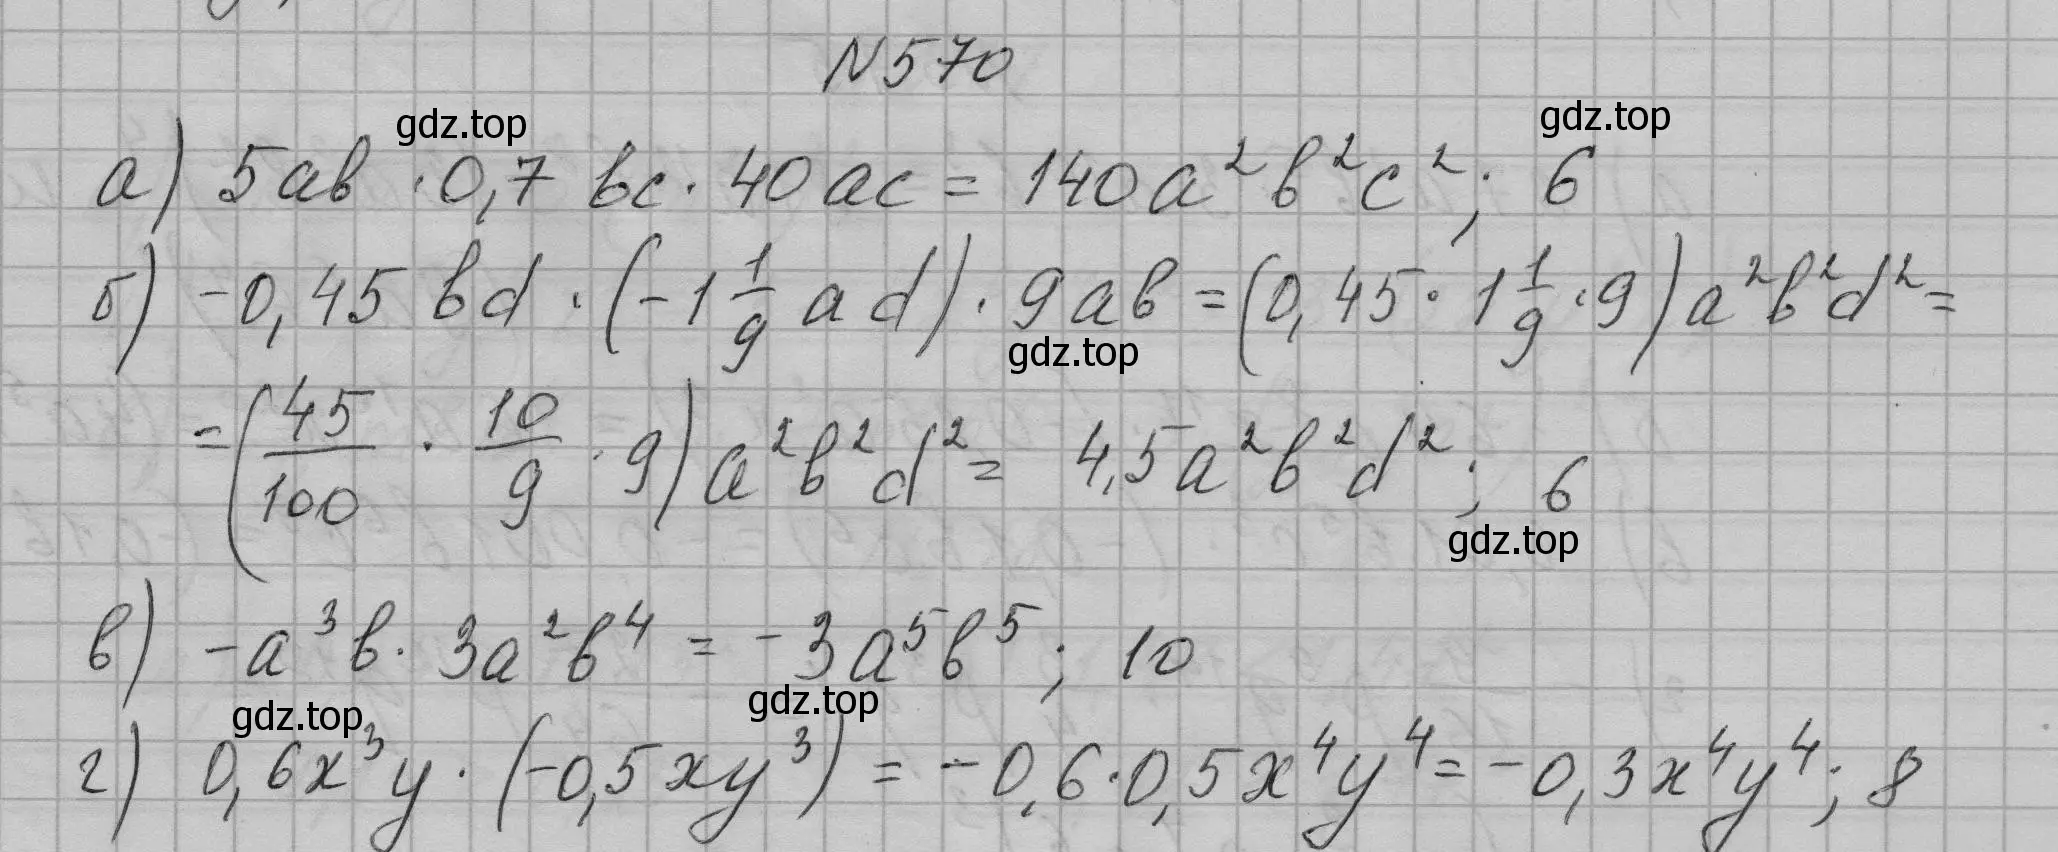 N570
gdz.top
gdz.top
а) 5ab · 0,7 bc · 40 ac = 140a²b²c²; 6
б) -0,45 bd · (-1 1/9 ad) · 9ab = (0,45 · 1 1/9 · 9) a²b²d² =
gdz.top
= (45/100 · 10/9 · 9) a²b²d² = 4,5a²b²d²; 6
gdz.top
в) -a³b · 3a²b⁴ = -3a⁵b⁵; 10
gdz.top
gdz.top
г) 0,6x³y · (-0,5xy³) = -0,6·0,5x⁴y⁴ = -0,3x⁴y⁴; 8